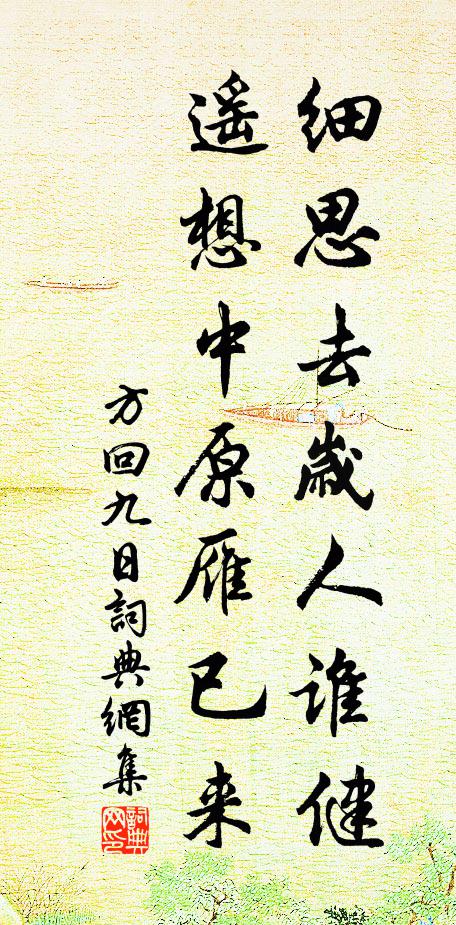 细思去歳人谁健
遥想中原雁已来
方回九日词典網集
詞典
网印